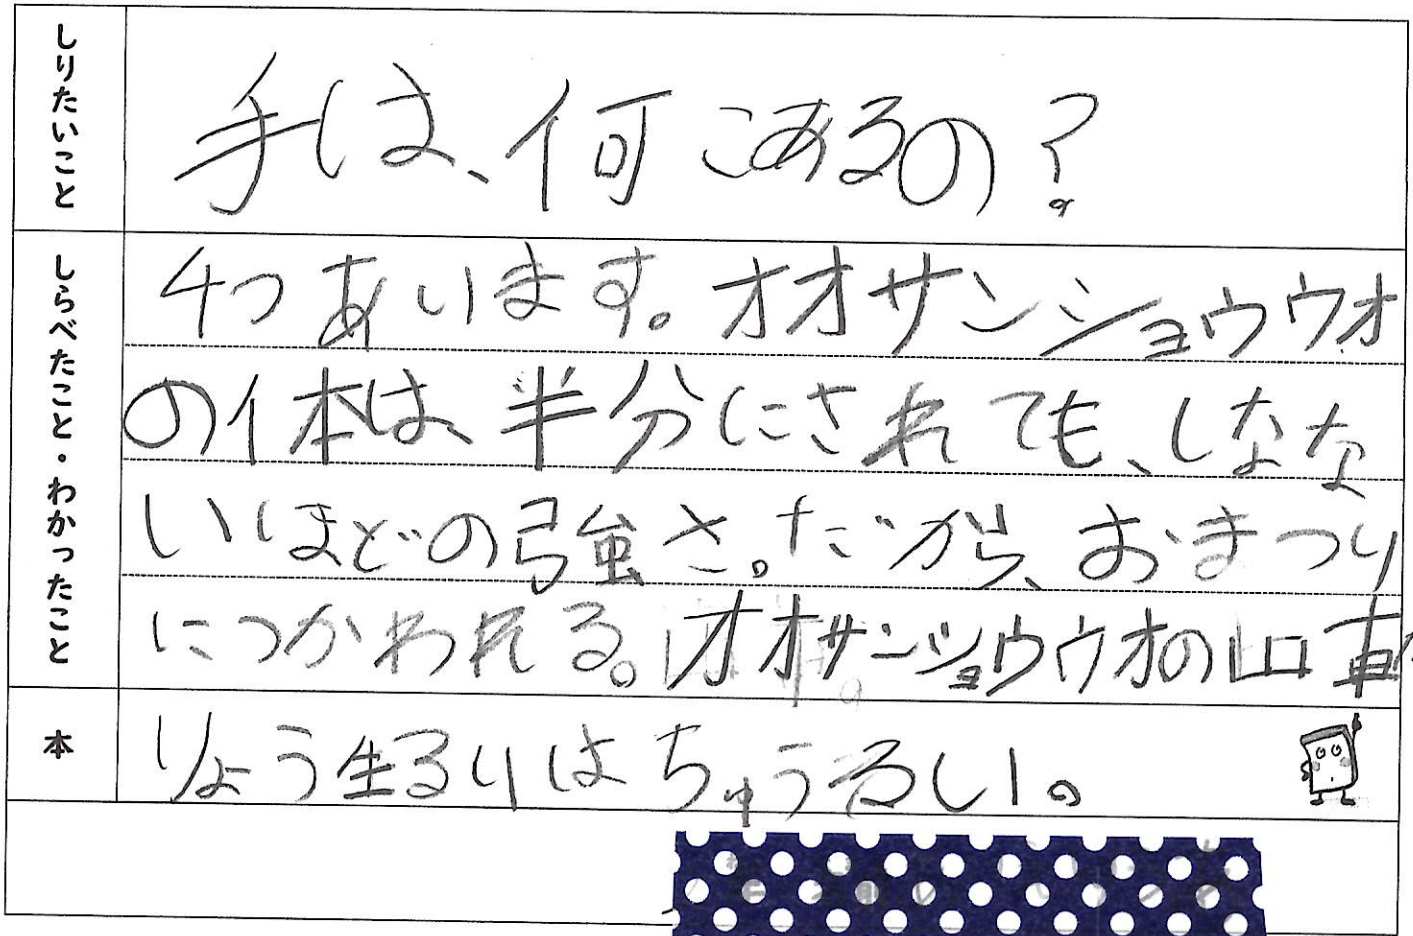 しりたいこと
手は、何こあるの?
しらべたこと・わかったこと
4つあります。オオサンショウウオ
の体は、半分にされても、しなな
いほどの強さ。だから、おまつり
につかわれる。オオサンショウウオの山車
本
りょう生るいはちゅうるい。